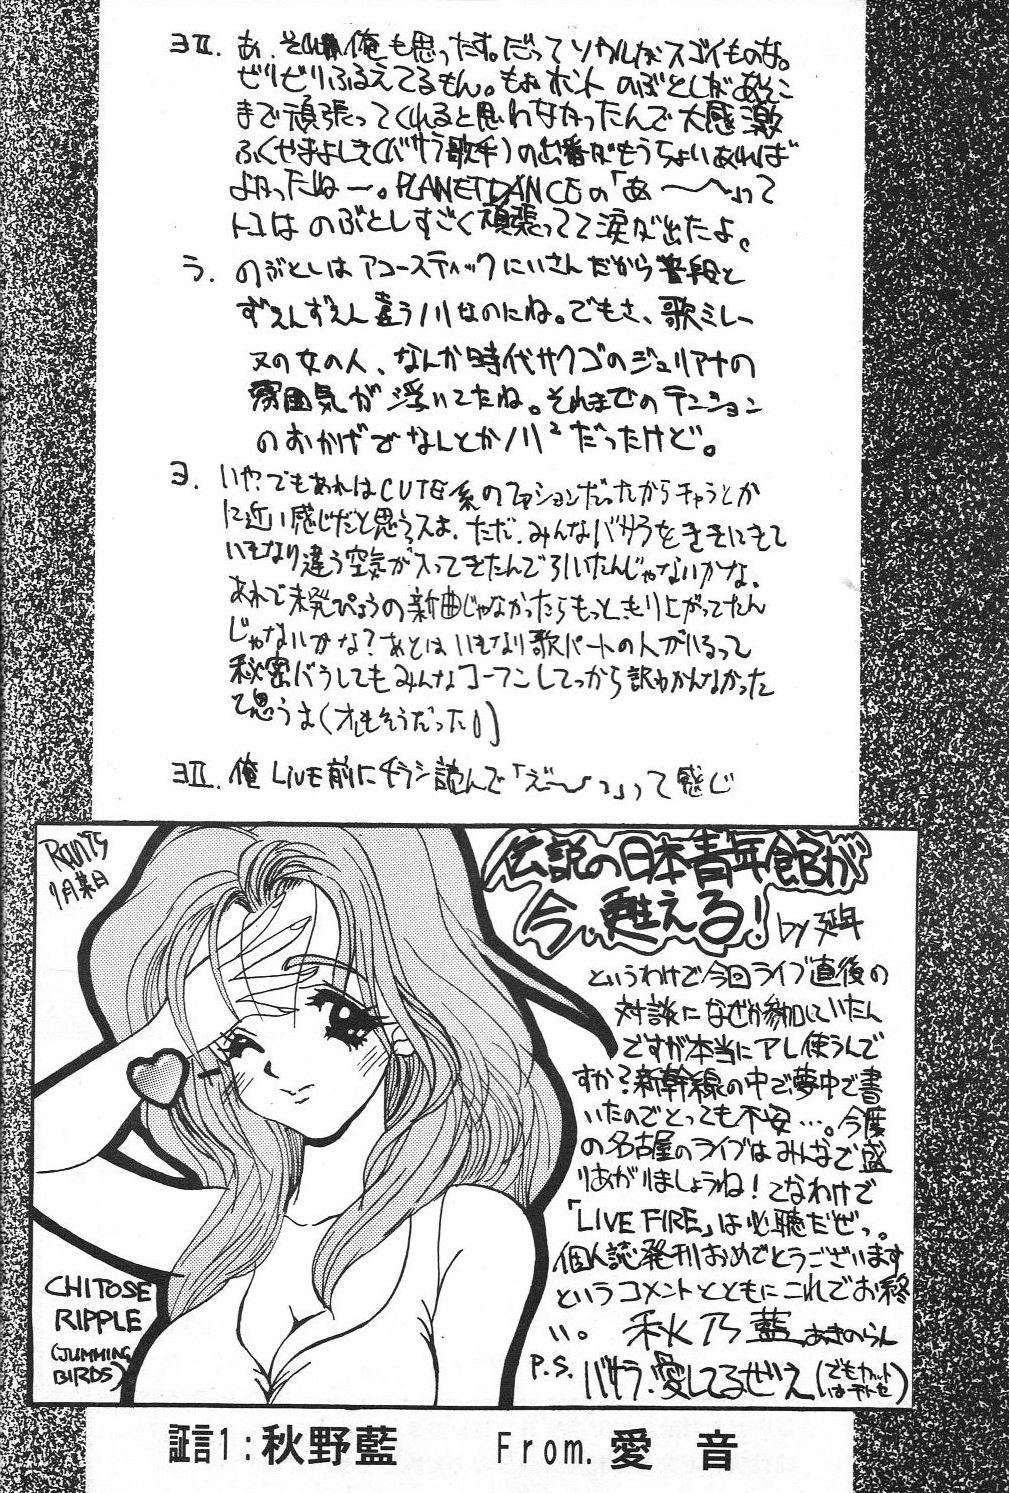 ヨII. あ、それ俺も思ったす。だってソウルがスゴイものな。
ビリビリふるえてるもん。もぉホント のぶとしがあそこ
まで頑張ってくれると思わなかったんで大感激
ふくやまよしき(バサラ歌手)の出番がもうちょいあれば
よかったねー。PLANET DANCEの「あ〜〜」って
トコは のぶとしすごく頑張ってて涙が出たよ。
う. のぶとしはアコースティックにいさんだから普段と
ずえんずえん違うノリなのにね。でもさ、歌ミレー
ヌの女の人、なんか時代サクゴのジュリアナの
雰囲気が浮いてたね。それまでのテンション
のおかげでなんとかノリノリだったけど。
ヨ. いや?でもあれはCUTE系のファションだったからキャラとか
に近い感じだと思うスよ。ただ、みんなバサラをききにきて
いきなり違う空気が入ってきたんで引いたんじゃないかな。
あれで未発ぴょうの新曲じゃなかったらもっともり上がってたん
じゃないかな?あとはいきなり歌パートの人がいるって
秘密バラしてもみんなコーフンしてっから訳わかんなかった
て思うよ(オレもそうだった!)
ヨII. 俺 LIVE前にチラシ読んで「え〜〜っ」って感じ
伝説の日本青年館が
今、甦える!
by 延年
というわけで今回ライブ直後の
対談になぜか参加していたん
ですが本当にアレ使うんで
すか?新幹線の中で夢中で書
いたのでとっても不安…。今度
の名古屋のライブはみんなで盛
りあがりましょうね!てなわけで
「LIVE FIRE」は必聴だぜっ。
個人誌発刊おめでとうございます
というコメントとともにこれでお終
い。 秋乃藍 あきのらん
P.S. バサラ、愛してるぜえ(でもカット
はチトセ)
CHITOSE
RIPPLE
(JUMMING
BIRDS)
証言1:秋野藍 From.愛 音